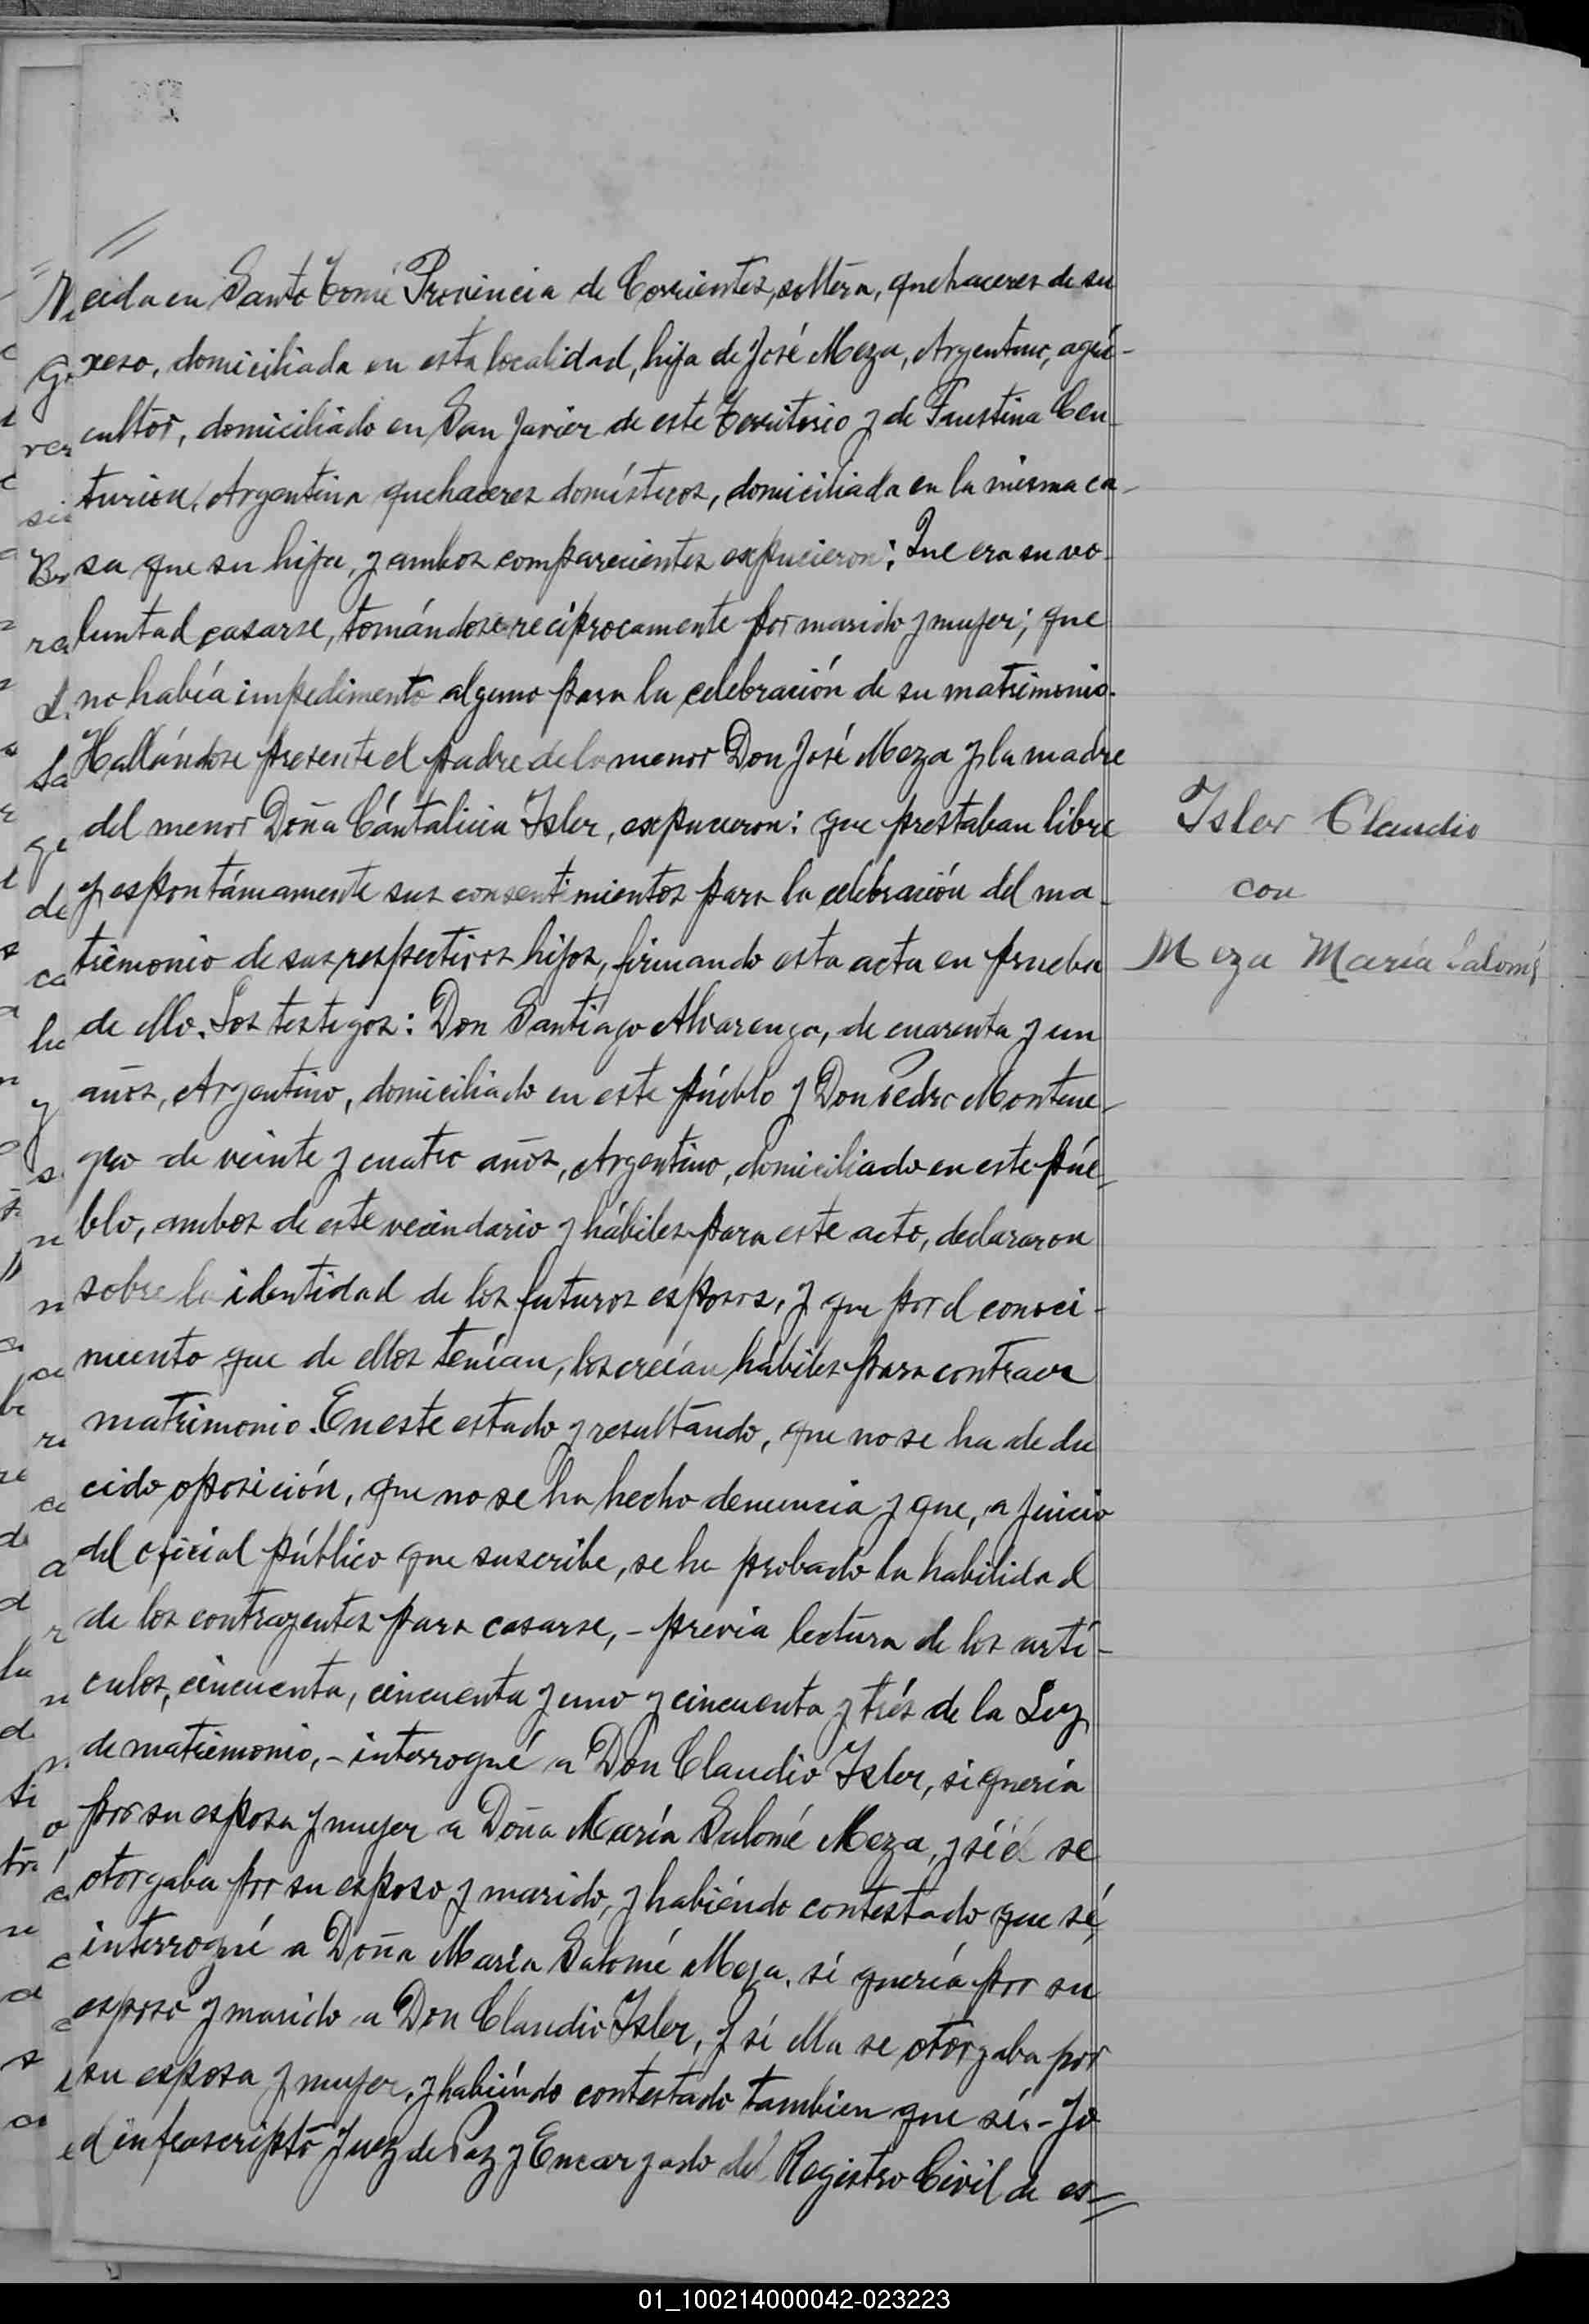 //
cida en Santo Tomé Provincia de Corrientes, soltera, quehaceres de su
sexo, domiciliada en esta localidad, hija de José Meza, Argentino, agri-
cultor, domiciliado en San Javier de este Territorio y de Faustina Cen-
turion, Argentina quehaceres domésticos, domiciliada en la misma ca-
sa que su hija, y ambos comparecientes expucieron: Que era su vo-
luntad casarse, tomándose reciprocamente por marido y mujer; que
no había impedimento alguno para la celebración de su matrimonio.
Hallándose presente el padre de la menor Don José Meza y la madre
del menor Doña Cántalicia Isler, expucieron: que prestaban libre
y espontáneamente sus consentimientos para la celebración del ma-
trimonio de sus respectivos hijos, firmando esta acta en prueba
de ello. Los testigos: Don Santiago Alvarenga, de cuarenta y un
años, Argentino, domiciliado en este pueblo y Don Pedro Montene-
gro de veinte y cuatro años, Argentino, domiciliado en este púe-
blo, ambos de este vecindario y hábiles para este acto, declararon
sobre la identidad de los futuros esposos, y que por el conoci-
miento que de ellos tenían, los creían hábiles para contraer
matrimonio. En este estado y resultando, que no se ha dedu
cido oposición, que no se ha hecho denuncia y que, a juicio
del oficial público que suscribe, se ha probado la habilidad
de los contrayentes para casarse, - previa lectura de los artí-
culos, cincuenta, cincuenta y uno y cincuenta y trés de la Ley
de matrimonio, - interrogué a Don Claudio Isler, si quería
por su esposa y mujer a Doña María Salomé Meza, y si él se
otorgaba por su esposo y marido, y habiéndo contestado que sí,
interrogué a Doña María Salomé Meza, si quería por su
esposo y marido a Don Claudio Isler, y si ella se otorgaba por
su esposa y mujer, y habiéndo contestado tambien que sí. - Yo
el infrascripto Juez de Paz y Encargado del Registro Civil de es//
Isler Claudio
con
Meza María Salomé
01_100214000042-023223